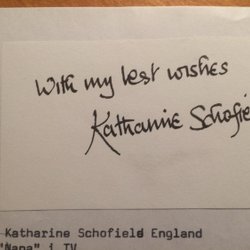 With my best wishes
Katharine Schofie
Katharine Schofield England
"Nana" i TV